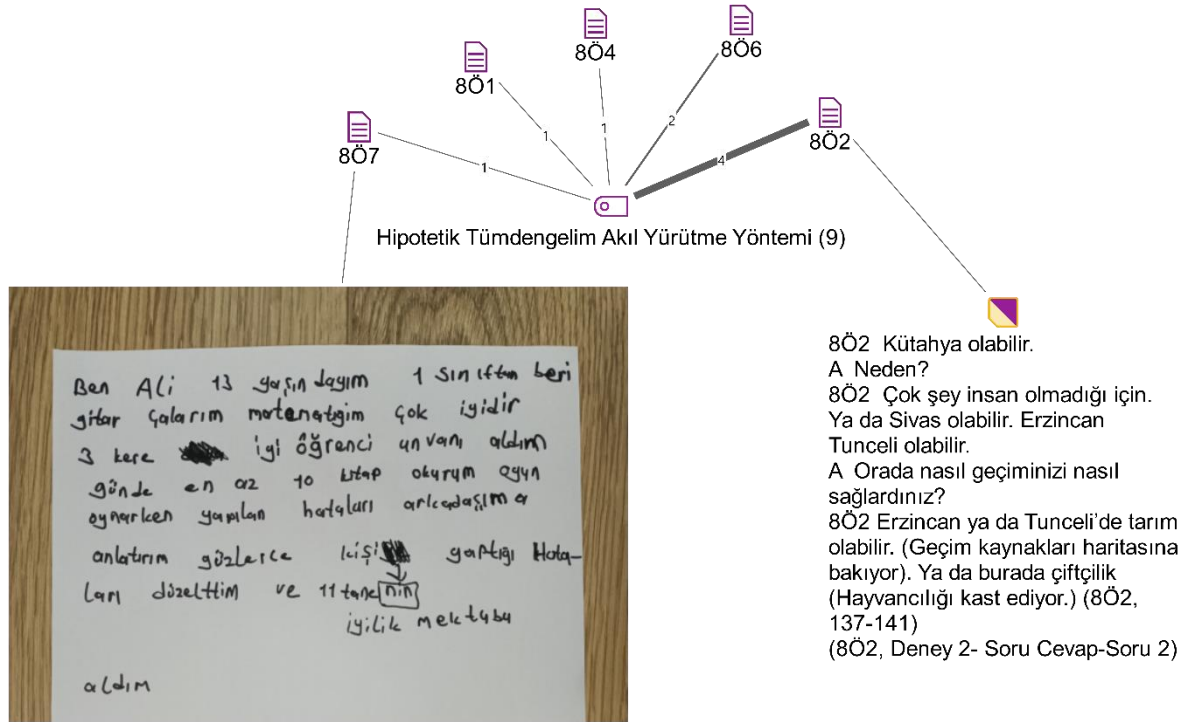 8Ö4
8Ö6
8Ö1
8Ö2
8Ö7
1
1
1
2
4
Hipotetik Tümdengelim Akıl Yürütme Yöntemi (9)
Ben Ali 13 yaşın dayım 1 sınıftan beri
gitar çalarım matematiğim çok iyidir
3 kere iyi öğrenci unvanı aldım
günde en az 10 kitap okurum oyun
oynarken yapılan hataları arkadaşıma
anlatırım gözlerce kişi nin yaptığı Hata-
ları düzelttim ve 11 tane
iyilik mektubu
aldım
8Ö2 Kütahya olabilir.
A Neden?
8Ö2 Çok şey insan olmadığı için.
Ya da Sivas olabilir. Erzincan
Tunceli olabilir.
A Orada nasıl geçiminizi nasıl
sağlardınız?
8Ö2 Erzincan ya da Tunceli’de tarım
olabilir. (Geçim kaynakları haritasına
bakıyor). Ya da burada çiftçilik
(Hayvancılığı kast ediyor.) (8Ö2,
137-141)
(8Ö2, Deney 2- Soru Cevap-Soru 2)